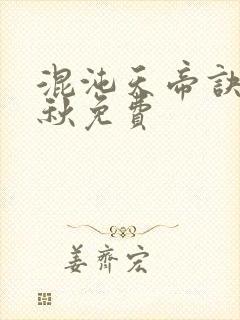 混沌天帝訣
秋免費
姜齊宏